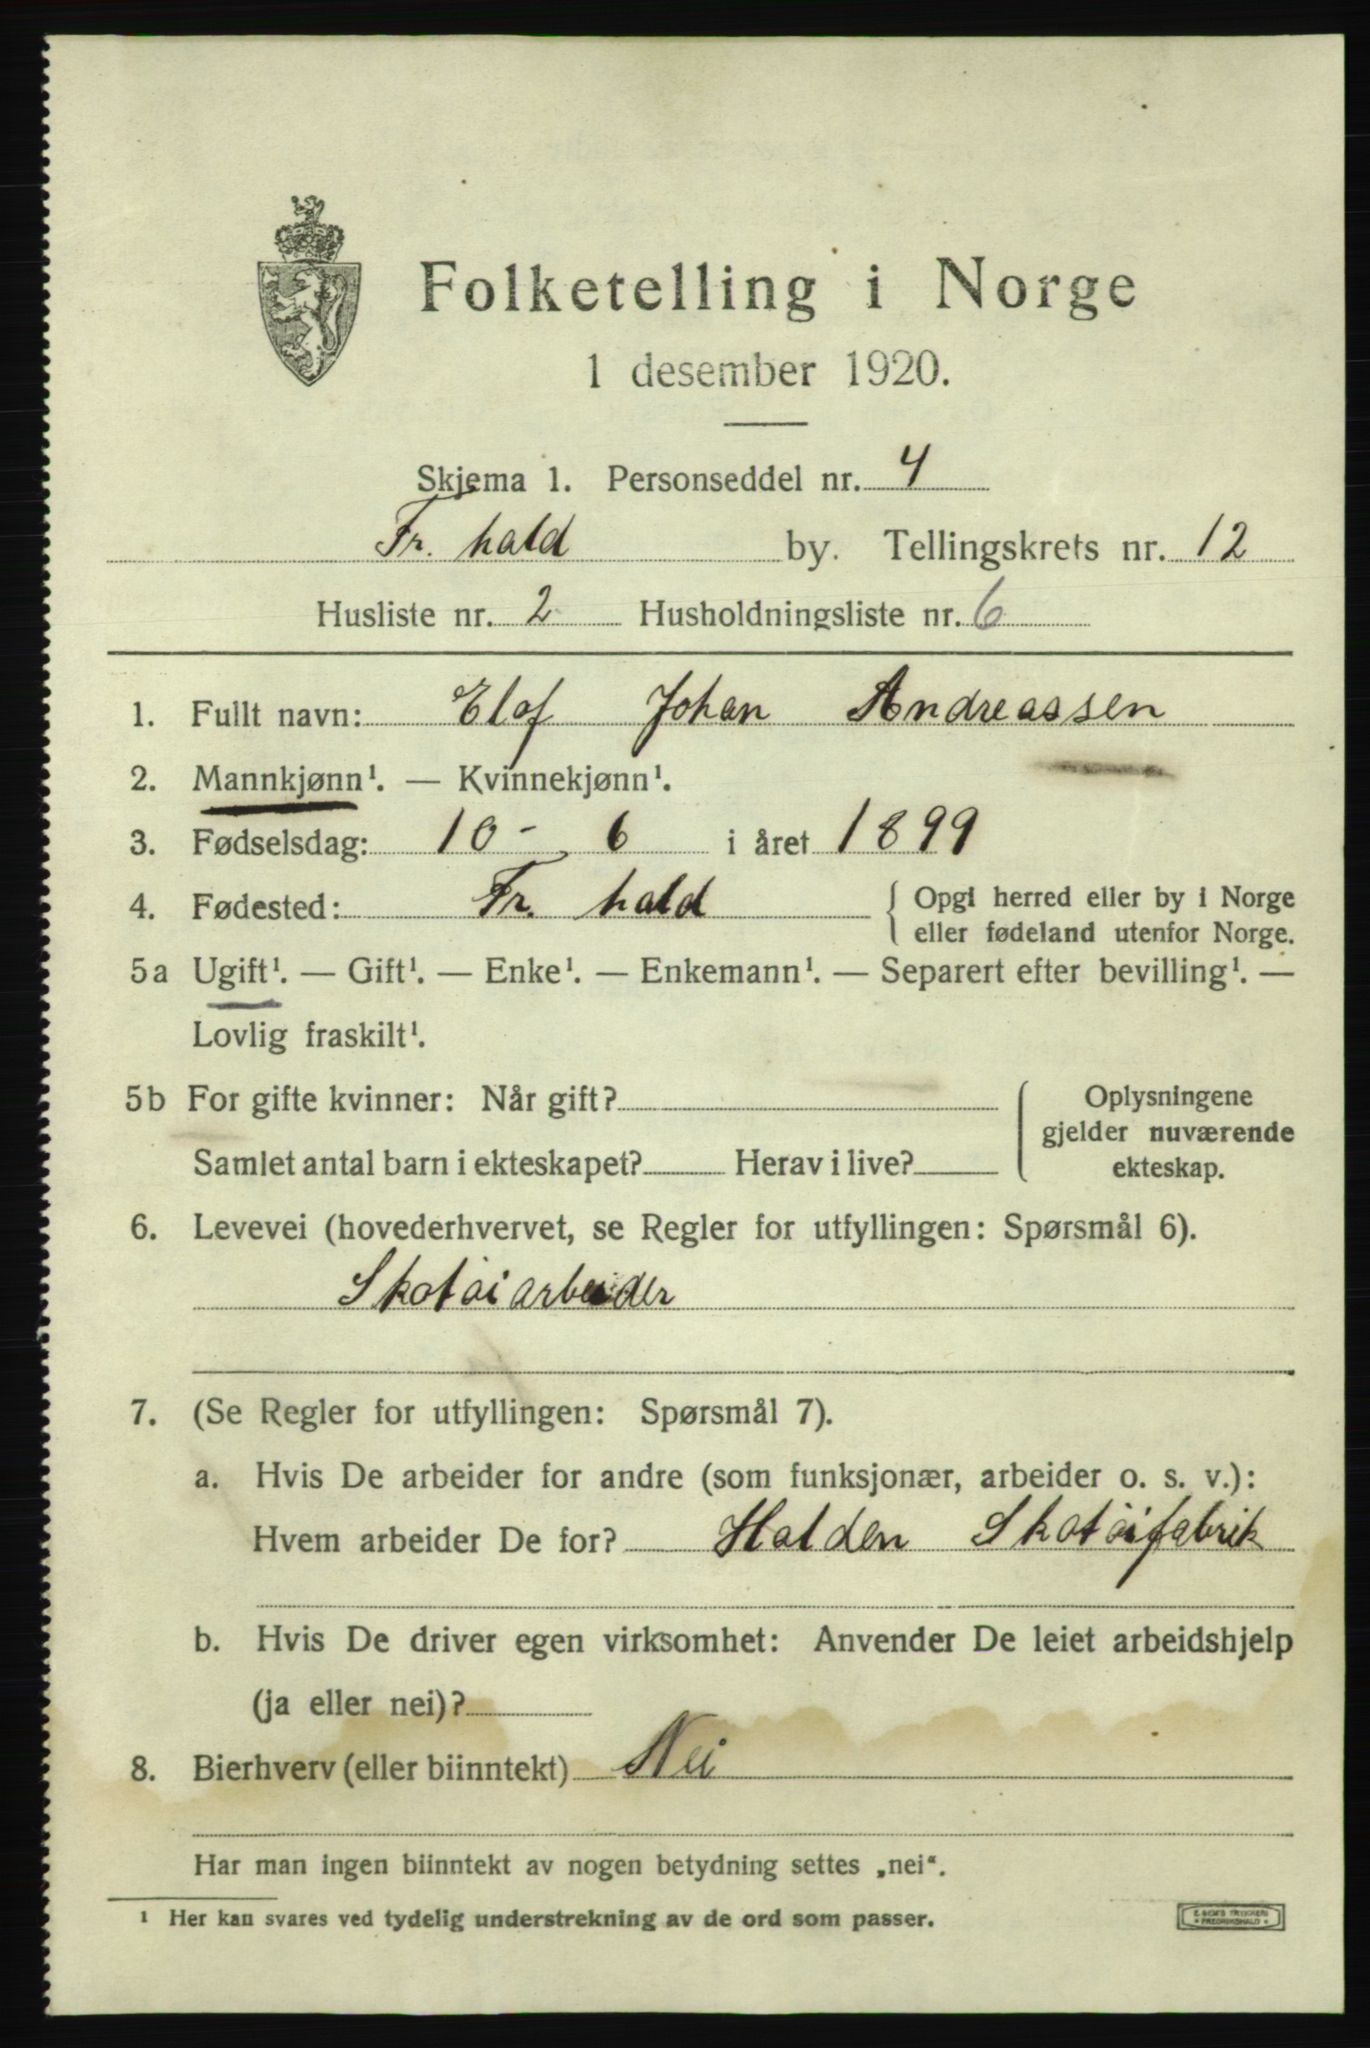 Folketelling i Norge
1 desember 1920.
Skjema 1. Personseddel nr. 4
Fr. hald by. Tellingskrets nr. 12
Husliste nr. 2 Husholdningsliste nr. 6
1. Fullt navn: Elof Johan Andreassen
2. Mannkjønn¹. — Kvinnekjønn¹.
3. Fødselsdag: 10 - 6 i året 1899
4. Fødested: Fr. hald { Opgi herred eller by i Norge
eller fødeland utenfor Norge.
5a Ugift¹. — Gift¹. — Enke¹. — Enkemann¹. — Separert efter bevilling¹. —
Lovlig fraskilt¹.
5b For gifte kvinner: Når gift? Oplysningene
gjelder nuværende
Samlet antal barn i ekteskapet? Herav i live? ekteskap.
6. Levevei (hovederhvervet, se Regler for utfyllingen: Spørsmål 6).
Skotøiarbeider
7. (Se Regler for utfyllingen: Spørsmål 7).
a. Hvis De arbeider for andre (som funksjonær, arbeider o. s. v.):
Hvem arbeider De for? Halden Skotøifabrik
b. Hvis De driver egen virksomhet: Anvender De leiet arbeidshjelp
(ja eller nei)?
8. Bierhverv (eller biinntekt) Nei
Har man ingen biinntekt av nogen betydning settes „nei“.
¹ Her kan svares ved tydelig understrekning av de ord som passer.